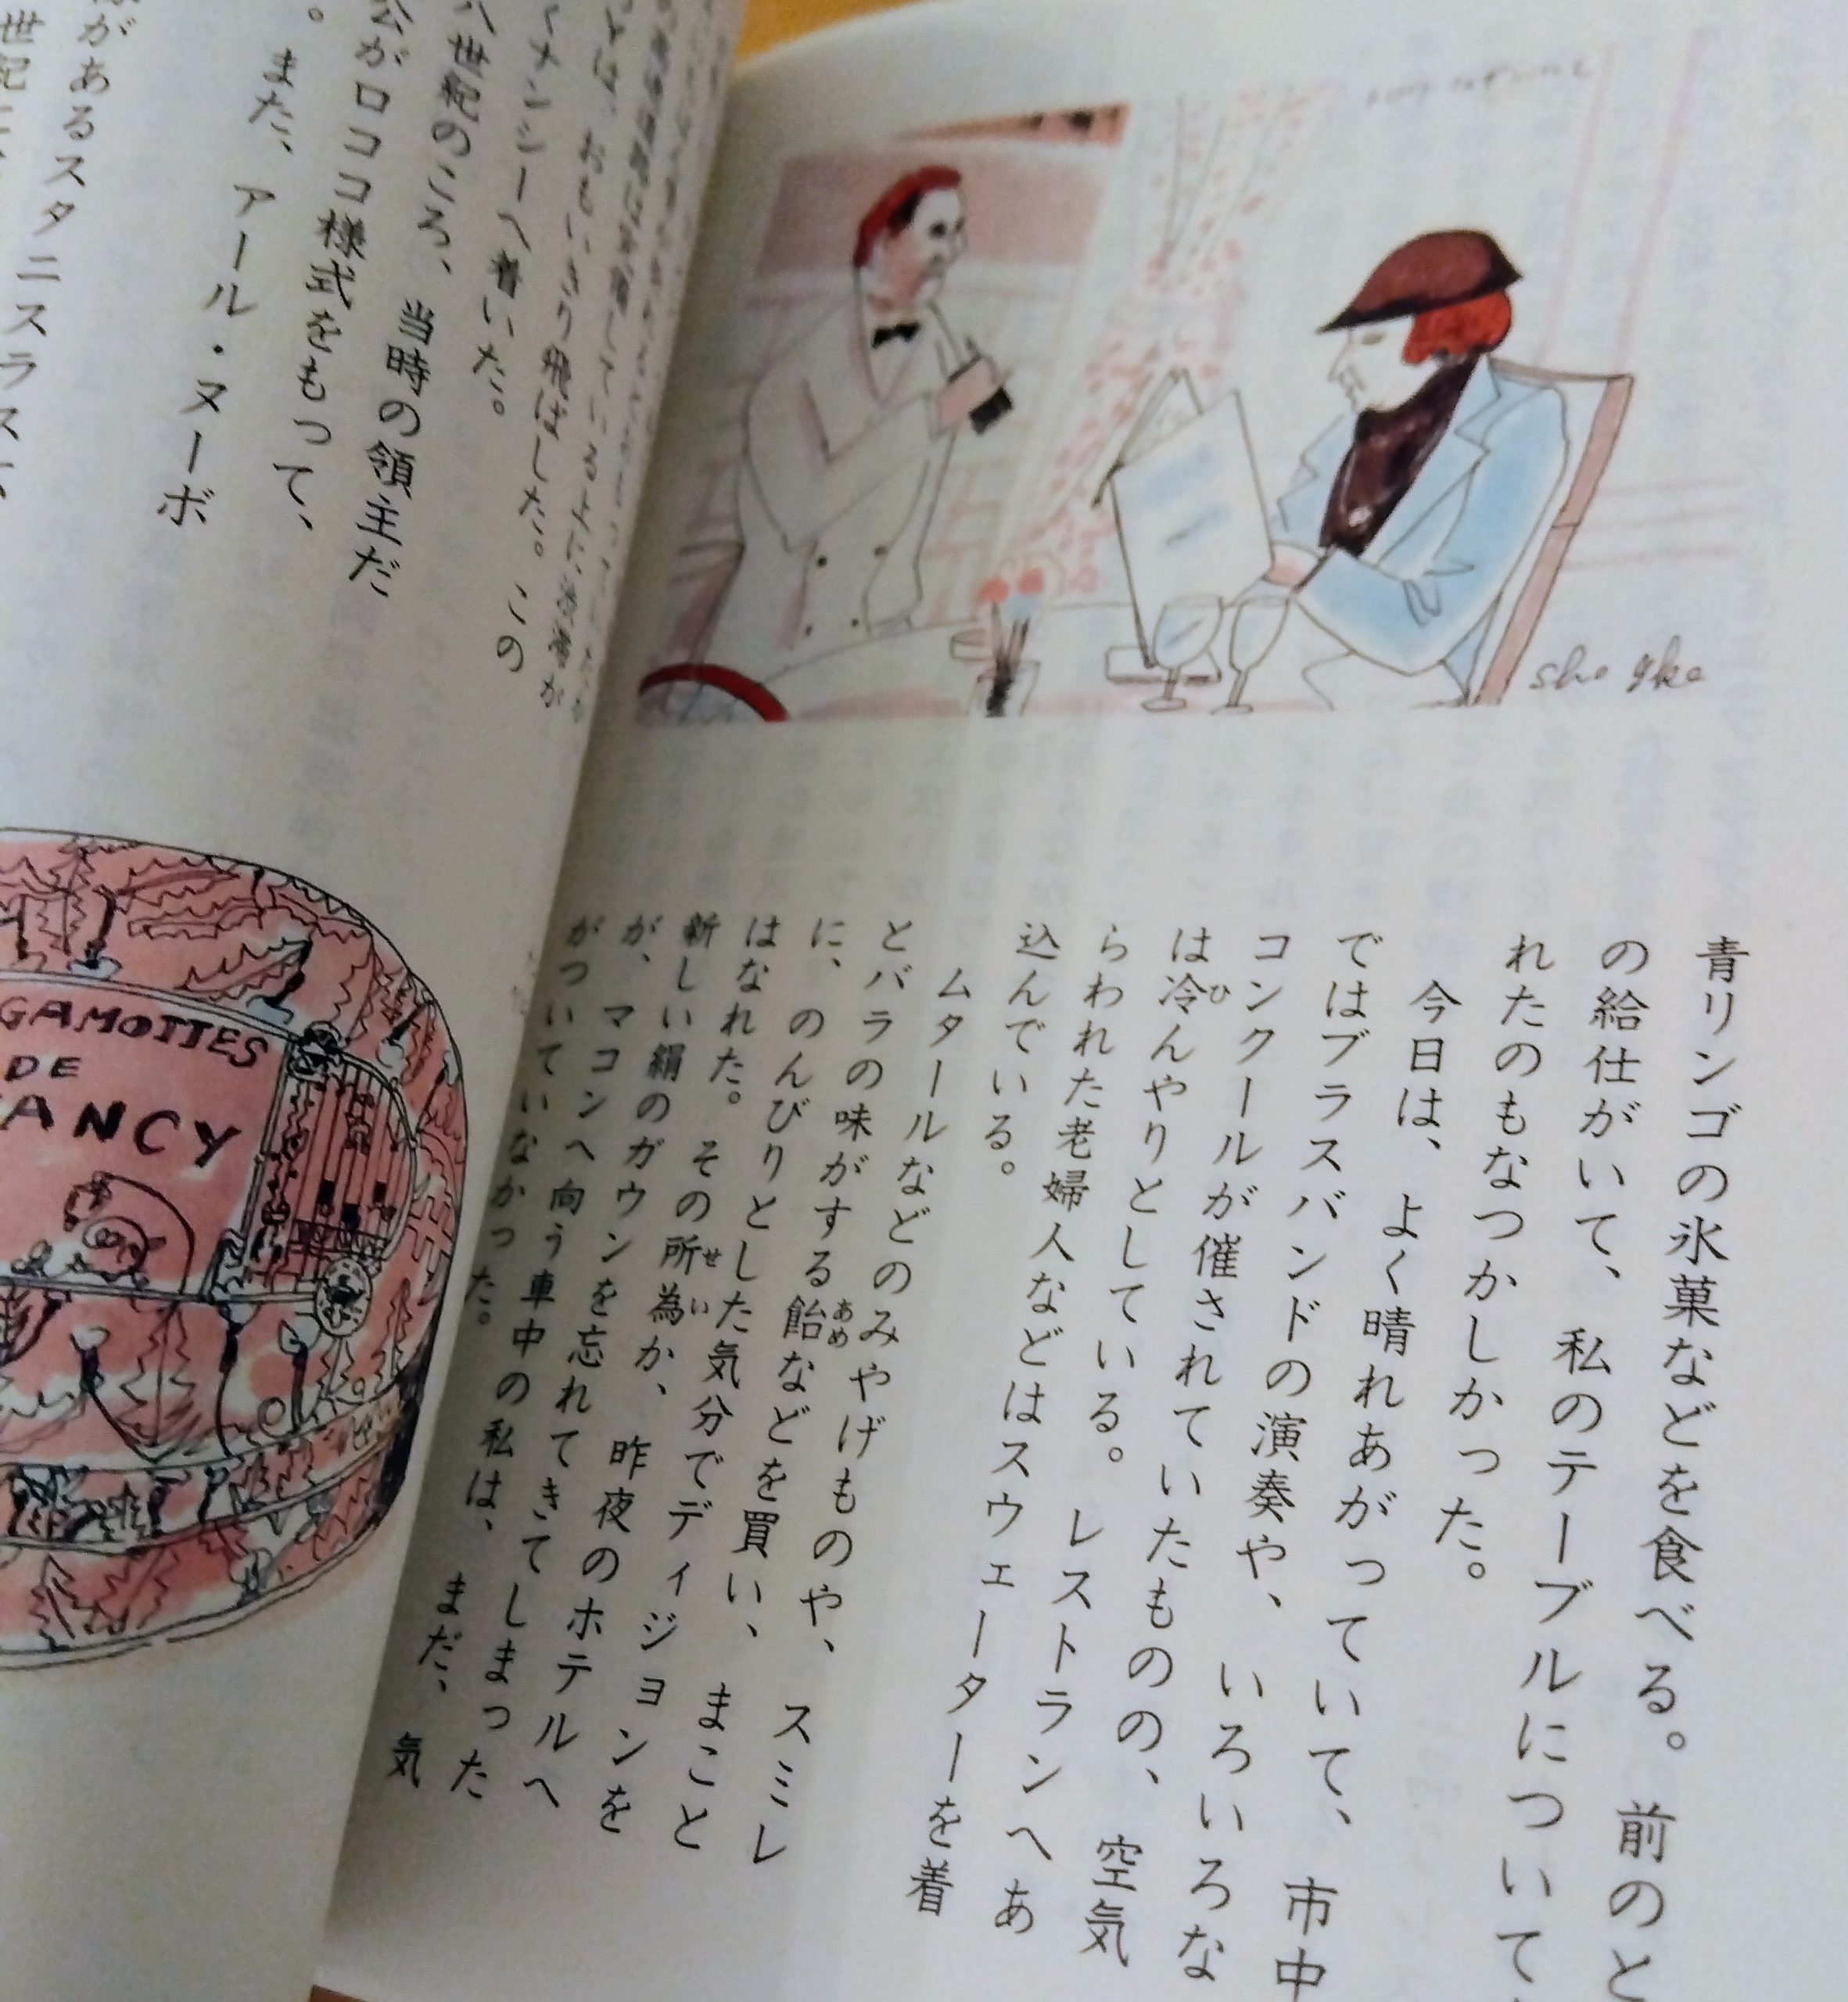 sho ike
青リンゴの氷菓などを食べる。前のと
の給仕がいて、私のテーブルについて
れたのもなつかしかった。
今日は、よく晴れあがっていて、市中
ではブラスバンドの演奏や、いろいろな
コンクールが催されていたものの、空気
は冷んやりとしている。レストランへあ
らわれた老婦人などはスウェーターを着
込んでいる。
ムタールなどのみやげものや、スミレ
とバラの味がする飴などを買い、まこと
に、のんびりとした気分でディジョンを
はなれた。その所為か、昨夜のホテルへ
新しい絹のガウンを忘れてきてしまった
が、マコンへ向う車中の私は、まだ、気
がついていなかった。
とは、おもいきり飛ばした。この
くナンシーへ着いた。
八世紀のころ、当時の領主だ
公がロココ様式をもって、
。また、アール・ヌーボ
があるスタニスラス
世紀に
GAMOTTES
DE
ANCY